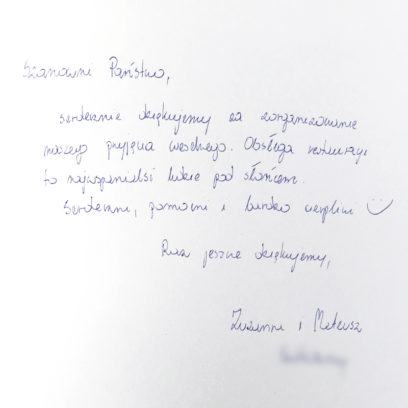 Szanowni Państwo,
serdecznie dziękujemy za zorganizowanie
naszego przyjęcia weselnego. Obsługa restauracji
to najwspanialsi ludzie pod słońcem.
Serdeczni, pomocni i bardzo cierpliwi
Raz jeszcze dziękujemy,
Zuzanna i Mateusz